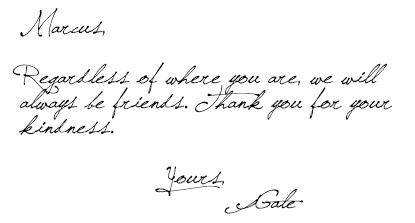 Marcus,
Regardless of where you are, we will
always be friends. Thank you for your
kindness.
Yours,
Gale